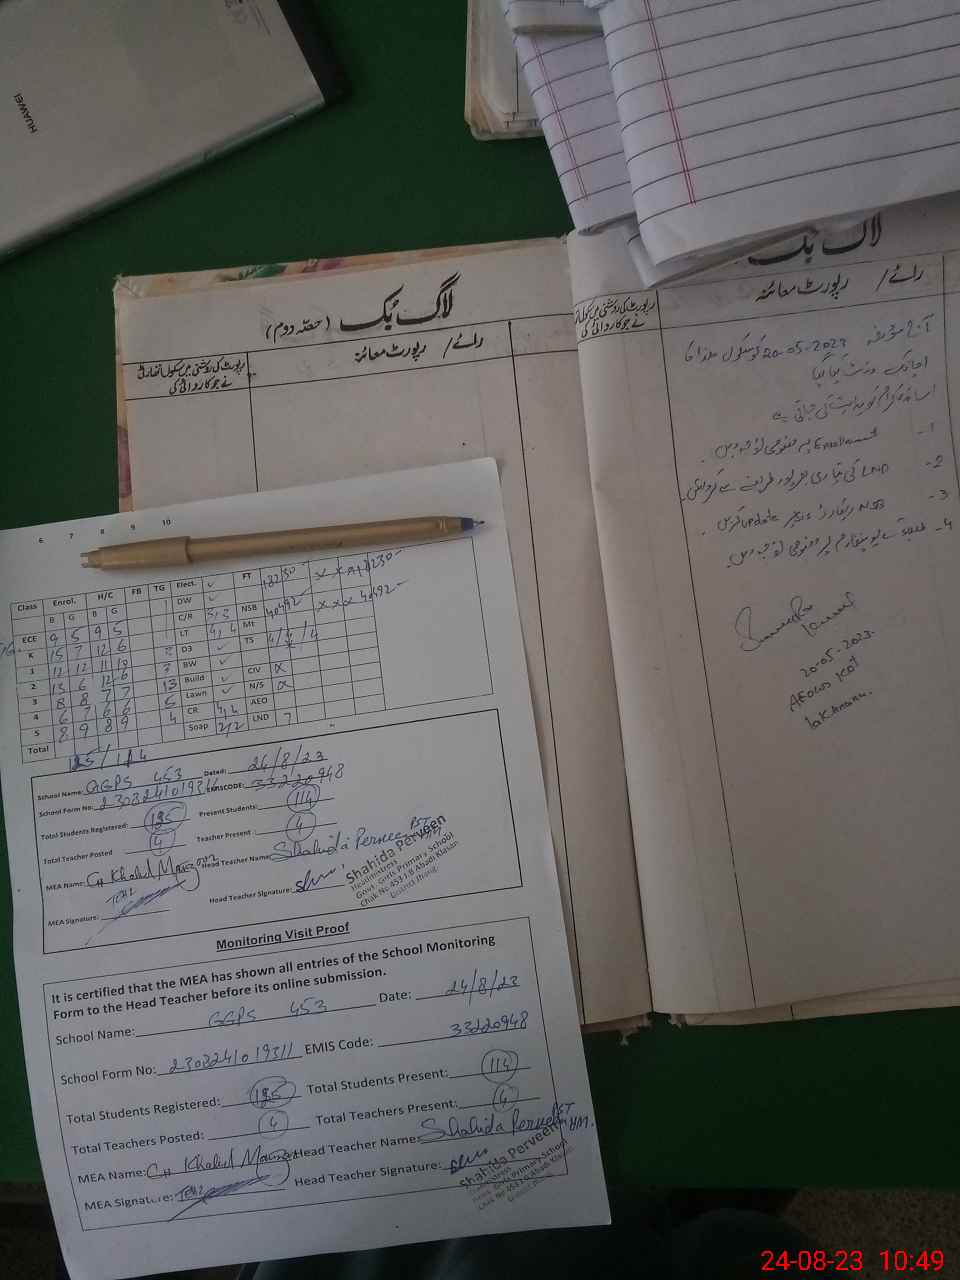 HUAWEI
لاگ بُک
رائے / رپورٹ معائنہ
لاگ بُک (حصّہ دوم)
رائے / رپورٹ معائنہ
رپورٹ کی روشنی میں سکول اتھارٹی نے جو کارروائی کی
20-05-2023 کو سکول ھذا کا
اچانک وزٹ کیا گیا
اساتذہ کرام کو ہدایت کی جاتی ہے
1- Enrollment پر خصوصی توجہ دیں۔
2- LND کی تیاری بھرپور طریقے سے کروائیں۔
3- NSB ریکارڈ update کریں۔
4- طلبہ کے یونیفارم پر خصوصی توجہ دیں۔
20-05-2023.
6 7 8 9 10
Class Enrol. H/C FB TG Elect. FT
B G B G DW
ECE 9 5 9 5 C/R 3,3 NSB 40492
K 15 7 12 6 LT 4,4 Mt
1 12 12 11 10 D3 TS 4/4/4
2 13 6 12 6 BW
3 8 8 7 7 13 Build CIV
4 6 7 6 6 5 Lawn N/S
5 8 9 8 9 4 CR 4,4 AEO
Total Soap 2/2 LND 7
125/114
School Name: GGPS 453 Dated: 24/8/23
School Form No: 2308241019311 EMISCODE: 33220948
Total Students Registered: 125 Present Students: 114
Total Teacher Posted 4 Teacher Present: 4
MEA Name: CH Khalid Manzoor Head Teacher Name: Shahida Perveen PST
MEA Signature: Head Teacher Signature:
Shahida Perveen
Headmistress
Govt. Girls Primary School
Chak No 453 J.B Abadi Klasan
District Jhang.
Monitoring Visit Proof
It is certified that the MEA has shown all entries of the School Monitoring
Form to the Head Teacher before its online submission.
School Name: GGPS 453 Date: 24/8/23
School Form No: 2308241019311 EMIS Code: 33220948
Total Students Registered: 125 Total Students Present: 114
Total Teachers Posted: 4 Total Teachers Present: 4
MEA Name: CH Khalid Manzoor Head Teacher Name: Shahida Perveen PST HM.
MEA Signature: Head Teacher Signature:
Shahida Perveen
Headmistress
Govt. Girls Primary School
Chak No 453 J.B Abadi Klasan
District Jhang.
24-08-23 10:49